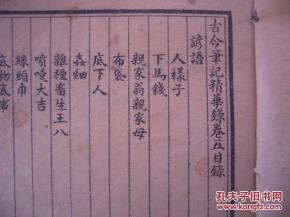 古今筆記精華錄卷五目錄
諺語
人樣子
下馬錢
親家翁親家母
布袋
底下人
姦細
雜種畜生王八
噴嚏大吉
綠頭巾
底物底事